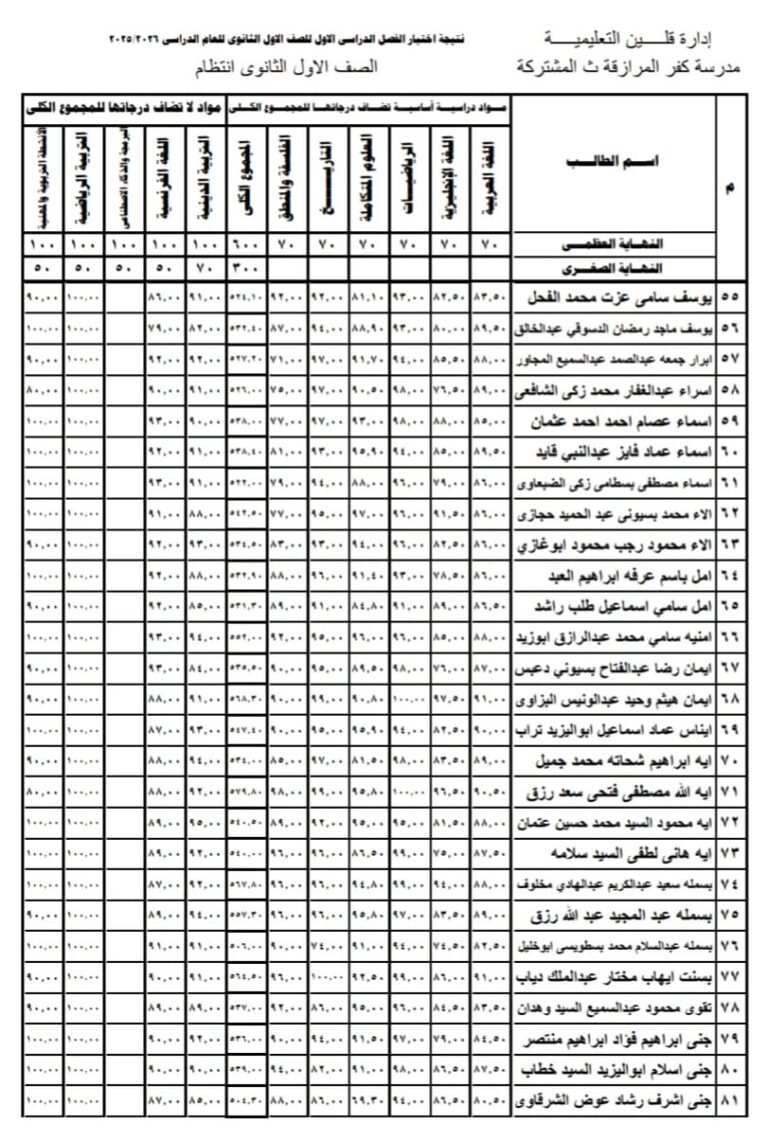 إدارة قلـــين التعليميـــة
نتيجة اختبار الفصل الدراسى الاول للصف الاول الثانوى للعام الدراسى ٢٠٢٥/٢٠٢٦
مدرسة كفر المرازقة ث المشتركة
الصف الاول الثانوى انتظام
م اسم الطالب مواد دراسية أساسية تضاف درجاتها للمجموع الكلى مواد لا تضاف درجاتها للمجموع الكلى
اللغة العربية اللغة الإنجليزية الرياضيات العلوم المتكاملة التاريخ الفلسفة والمنطق المجموع الكلى التربية الدينية اللغة الفرنسية البرمجة والذكاء الاصطناعى التربية الرياضية الأنشطة التربوية والمهنية
النهاية العظمى ٧٠ ٧٠ ٧٠ ٧٠ ٧٠ ٧٠ ٦٠٠ ١٠٠ ١٠٠ ١٠٠ ١٠٠ ١٠٠
النهاية الصغرى ٣٠٠ ٧٠ ٥٠ ٥٠ ٥٠ ٥٠
٥٥ يوسف سامى عزت محمد الفحل ٨٣,٥٠ ٨٢,٥٠ ٩٣,٠٠ ٨١,١٠ ٩٢,٠٠ ٩٢,٠٠ ٥٢٤,١٠ ٩١,٠٠ ٨٦,٠٠ ١٠٠,٠٠ ٩٠,٠٠
٥٦ يوسف ماجد رمضان الدسوقي عبدالخالق ٨٩,٥٠ ٨٠,٠٠ ٩٣,٠٠ ٨٨,٩٠ ٩٤,٠٠ ٨٧,٠٠ ٥٣٢,٤٠ ٨٢,٠٠ ٧٩,٠٠ ١٠٠,٠٠ ١٠٠,٠٠
٥٧ ابرار جمعه عبدالصمد عبدالسميع المجاور ٨٨,٠٠ ٨٥,٥٠ ٩٤,٠٠ ٩١,٧٠ ٩٧,٠٠ ٧١,٠٠ ٥٢٧,٢٠ ٩٢,٠٠ ٩٢,٠٠ ١٠٠,٠٠ ٩٠,٠٠
٥٨ اسراء عبدالغفار محمد زكى الشافعى ٨٩,٠٠ ٧٦,٥٠ ٩٨,٠٠ ٩٠,٥٠ ٩٧,٠٠ ٧٥,٠٠ ٥٢٦,٠٠ ٩١,٠٠ ٩٠,٠٠ ١٠٠,٠٠ ٨٠,٠٠
٥٩ اسماء عصام احمد احمد عثمان ٨٥,٠٠ ٨٨,٠٠ ٩٨,٠٠ ٩٣,٠٠ ٩٧,٠٠ ٧٧,٠٠ ٥٣٨,٠٠ ٩٠,٠٠ ٩٣,٠٠ ١٠٠,٠٠ ١٠٠,٠٠
٦٠ اسماء عماد فايز عبدالنبي قايد ٨٩,٥٠ ٨٥,٠٠ ٩٤,٠٠ ٩٥,٩٠ ٩٣,٠٠ ٨١,٠٠ ٥٣٨,٤٠ ٩١,٠٠ ٩٢,٠٠ ١٠٠,٠٠ ١٠٠,٠٠
٦١ اسماء مصطفى بسطامى زكى الضبعاوى ٨٦,٠٠ ٧٩,٠٠ ٩٦,٠٠ ٨٨,٠٠ ٩٤,٠٠ ٧٩,٠٠ ٥٢٢,٠٠ ٩١,٠٠ ٩٣,٠٠ ١٠٠,٠٠ ١٠٠,٠٠
٦٢ الاء محمد بسيونى عبد الحميد حجازى ٨٦,٠٠ ٩١,٥٠ ٩٦,٠٠ ٩٧,٠٠ ٩٥,٠٠ ٧٧,٠٠ ٥٤٢,٥٠ ٨٨,٠٠ ٩١,٠٠ ١٠٠,٠٠ ١٠٠,٠٠
٦٣ الاء محمود رجب محمود ابوغازي ٨٦,٠٠ ٨٢,٥٠ ٩٦,٠٠ ٩٤,٠٠ ٩٣,٠٠ ٨٣,٠٠ ٥٣٤,٥٠ ٩٣,٠٠ ٩٢,٠٠ ١٠٠,٠٠ ٩٠,٠٠
٦٤ امل باسم عرفه ابراهيم العبد ٨٦,٠٠ ٧٨,٥٠ ٩٣,٠٠ ٩١,٤٠ ٩٦,٠٠ ٨٨,٠٠ ٥٣٢,٩٠ ٨٨,٠٠ ٩٢,٠٠ ١٠٠,٠٠ ١٠٠,٠٠
٦٥ امل سامي اسماعيل طلب راشد ٨٦,٥٠ ٨٩,٠٠ ٩١,٠٠ ٨٤,٨٠ ٩١,٠٠ ٨٩,٠٠ ٥٣١,٣٠ ٨٥,٠٠ ٩٢,٠٠ ١٠٠,٠٠ ٩٠,٠٠
٦٦ امنيه سامي محمد عبدالرازق ابوزيد ٨٨,٠٠ ٨٥,٠٠ ٩٦,٠٠ ٩٦,٠٠ ٩٥,٠٠ ٩٢,٠٠ ٥٥٢,٠٠ ٩٤,٠٠ ٩٣,٠٠ ١٠٠,٠٠ ١٠٠,٠٠
٦٧ ايمان رضا عبدالفتاح بسيوني دعبس ٨٧,٠٠ ٧٦,٠٠ ٩٨,٠٠ ٨٩,٥٠ ٩٥,٠٠ ٩٠,٠٠ ٥٣٥,٥٠ ٨٤,٠٠ ٩٣,٠٠ ١٠٠,٠٠ ٩٠,٠٠
٦٨ ايمان هيثم وحيد عبدالونيس البزاوى ٩١,٠٠ ٩٧,٥٠ ١٠٠,٠٠ ٩٠,٨٠ ٩٩,٠٠ ٩٠,٠٠ ٥٦٨,٣٠ ٩١,٠٠ ٨٨,٠٠ ١٠٠,٠٠ ٩٠,٠٠
٦٩ ايناس عماد اسماعيل ابواليزيد تراب ٩٠,٠٠ ٨٢,٥٠ ٩٤,٠٠ ٩٥,٩٠ ٩٥,٠٠ ٩٠,٠٠ ٥٤٧,٤٠ ٩٣,٠٠ ٨٧,٠٠ ١٠٠,٠٠ ١٠٠,٠٠
٧٠ ايه ابراهيم شحاته محمد جميل ٨٩,٠٠ ٨٣,٥٠ ٩٨,٠٠ ٨١,٥٠ ٩٧,٠٠ ٨٥,٠٠ ٥٣٤,٠٠ ٩٤,٠٠ ٨٨,٠٠ ١٠٠,٠٠ ٩٠,٠٠
٧١ ايه الله مصطفى فتحى سعد رزق ٩٠,٥٠ ٩٦,٥٠ ١٠٠,٠٠ ٩٥,٨٠ ٩٩,٠٠ ٩٨,٠٠ ٥٧٩,٨٠ ٩٢,٠٠ ٨٨,٠٠ ١٠٠,٠٠ ٨٠,٠٠
٧٢ ايه محمود السيد محمد حسين عتمان ٨٨,٠٠ ٨١,٥٠ ٩٥,٠٠ ٩٥,٠٠ ٩٢,٠٠ ٨٩,٠٠ ٥٤٠,٥٠ ٩٥,٠٠ ٨٩,٠٠ ١٠٠,٠٠ ١٠٠,٠٠
٧٣ ايه هانى لطفى السيد سلامه ٨٧,٥٠ ٧٥,٠٠ ٩٩,٠٠ ٨٦,٥٠ ٩٦,٠٠ ٩٦,٠٠ ٥٤٠,٠٠ ٩٢,٠٠ ٨٩,٠٠ ١٠٠,٠٠ ١٠٠,٠٠
٧٤ بسمله سعيد عبدالكريم عبدالهادي مخلوف ٨٨,٠٠ ٩٤,٠٠ ٩٩,٠٠ ٩٤,٨٠ ٩٦,٠٠ ٩٦,٠٠ ٥٦٧,٨٠ ٩٢,٠٠ ٨٧,٠٠ ١٠٠,٠٠ ١٠٠,٠٠
٧٥ بسمله عبد المجيد عبد الله رزق ٨٩,٠٠ ٨٣,٥٠ ٩٧,٠٠ ٩٥,٨٠ ٩٦,٠٠ ٩٦,٠٠ ٥٥٧,٣٠ ٩٤,٠٠ ٨٩,٠٠ ١٠٠,٠٠ ٩٠,٠٠
٧٦ بسمله عبدالسلام محمد بسطويسى ابوخليل ٨٢,٥٠ ٧٤,٥٠ ٩٤,٠٠ ٩١,٠٠ ٧٤,٠٠ ٩٠,٠٠ ٥٠٦,٠٠ ٩١,٠٠ ٩١,٠٠ ١٠٠,٠٠ ١٠٠,٠٠
٧٧ بسنت ايهاب مختار عبدالملك دياب ٩١,٠٠ ٨٦,٠٠ ٩٩,٠٠ ٩٢,٥٠ ١٠٠,٠٠ ٩٦,٠٠ ٥٦٤,٥٠ ٩١,٠٠ ٩٠,٠٠ ١٠٠,٠٠ ٩٠,٠٠
٧٨ تقوى محمود عبدالسميع السيد وهدان ٨٣,٥٠ ٨٤,٥٠ ٩٦,٠٠ ٩٥,٠٠ ٨٦,٠٠ ٩٢,٠٠ ٥٣٧,٠٠ ٨٩,٠٠ ٨٩,٠٠ ١٠٠,٠٠ ٩٠,٠٠
٧٩ جنى ابراهيم فؤاد ابراهيم منتصر ٨٤,٥٠ ٧٩,٠٠ ٩٧,٠٠ ٩١,٥٠ ٩٤,٠٠ ٩٠,٠٠ ٥٣٦,٠٠ ٩٢,٠٠ ٩٠,٠٠ ١٠٠,٠٠ ١٠٠,٠٠
٨٠ جنى اسلام ابواليزيد السيد خطاب ٨٧,٥٠ ٨٦,٥٠ ٩٨,٠٠ ٩١,٠٠ ٨٢,٠٠ ٩٤,٠٠ ٥٣٩,٠٠ ٩٠,٠٠ ٩٠,٠٠ ١٠٠,٠٠ ١٠٠,٠٠
٨١ جنى اشرف رشاد عوض الشرقاوى ٨٠,٥٠ ٨٦,٥٠ ٩٤,٠٠ ٦٩,٣٠ ٨٦,٠٠ ٨٨,٠٠ ٥٠٤,٣٠ ٨٥,٠٠ ٨٧,٠٠ ١٠٠,٠٠ ١٠٠,٠٠